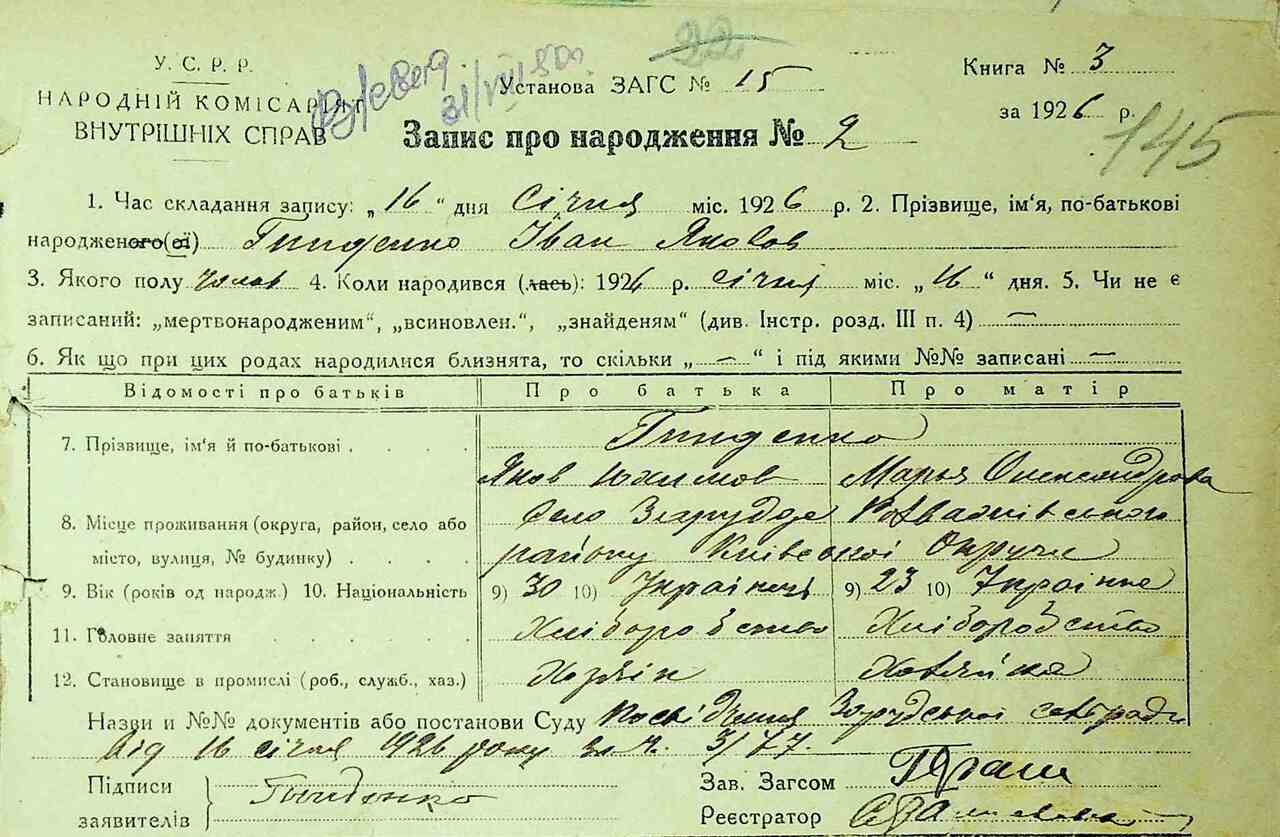 У. С. Р. Р.
НАРОДНІЙ КОМІСАРІЯТ
ВНУТРІШНІХ СПРАВ
22
31/VIII 80
Установа ЗАГС № 15
Книга № 3
за 1926 р.
145
Запис про народження № 2
1. Час складання запису: „16“ дня Січня міс. 1926 р. 2. Прізвище, ім'я, по-батькові
народженого(ої) Гниденко Іван Яковов
3. Якого полу чолов 4. Коли народився (лась): 1926 р. січня міс. „16“ дня. 5. Чи не є
записаний: „мертвонародженим“, „всиновлен.“, „знайденям“ (див. Інстр. розд. III п. 4) —
6. Як що при цих родах народилися близнята, то скільки „—“ і під якими №№ записані —
Відомості про батьків Про батька Про матір
7. Прізвище, ім'я й по-батькові . . . . Гниденко
Яков Юхимов Марья Олександрова
8. Місце проживання (округа, район, село або Село Зарудде Розважівського
місто, вулиця, № будинку) . . . . району Київської Округи
9. Вік (років од народж.) 10. Національність 9) 30 10) Українець 9) 23 10) Українка
11. Головне заняття . . . . Хліборобство Хліборобство
12. Становище в промислі (роб., служб., хаз.) Хозяїн Хозяйка
Назви и №№ документів або постанови Суду Посвідчення Зарудської сільради
від 16 січня 1926 року за ч. 3/77.
Підписи
заявителів Гниденко
Зав. Загсом
Реєстратор